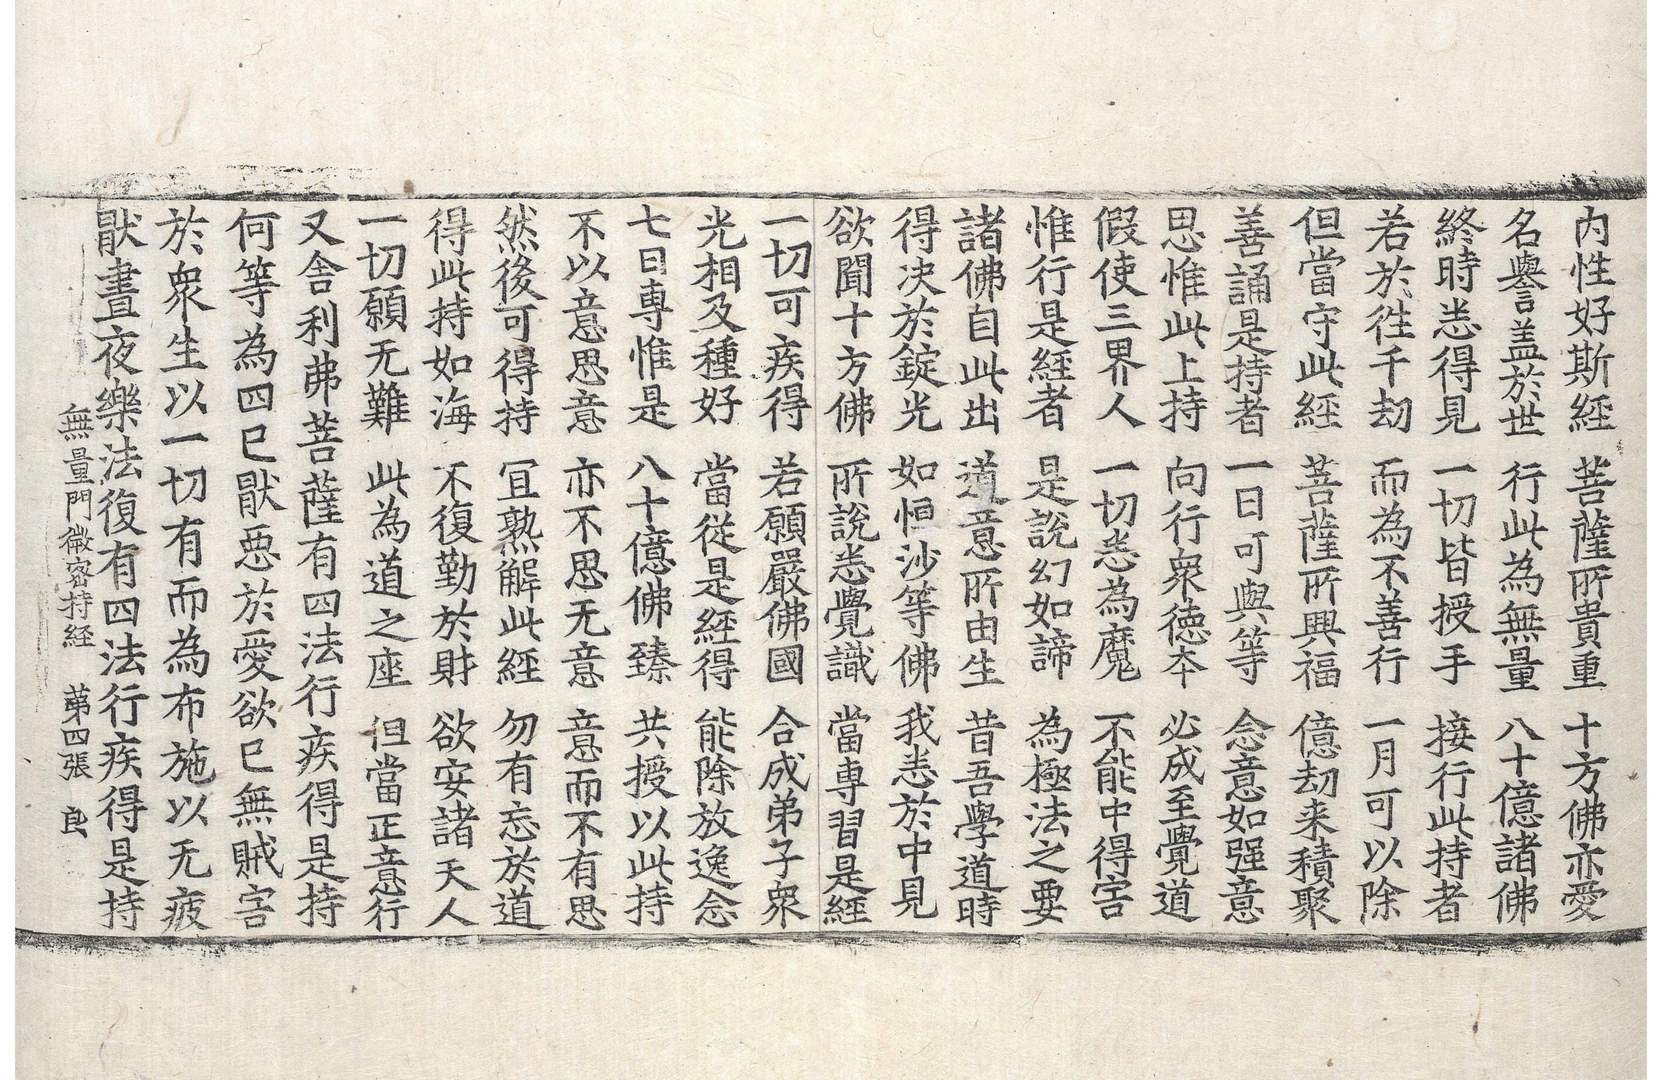 内性好斯經 菩薩所貴重 十方佛亦愛
名譽盖於世 行此為無量 八十億諸佛
終時悉得見 一切皆授手 接行此持者
若於往千劫 而為不善行 一月可以除
但當守此經 菩薩所興福 億劫来積聚
善誦是持者 一日可與等 念意如强意
思惟此上持 向行衆徳本 必成至覺道
假使三界人 一切悉為魔 不能中得害
惟行是經者 是說幻如諦 為極法之要
諸佛自此出 道意所由生 昔吾學道時
得决於錠光 如恒沙等佛 我悉於中見
欲聞十方佛 所說悉覺識 當專習是經
一切可疾得 若願嚴佛國 合成弟子衆
光相及種好 當從是經得 能除放逸念
七日專惟是 八十億佛臻 共授以此持
不以意思意 亦不思无意 意而不有思
然後可得持 冝熟解此經 勿有忘於道
得此持如海 不復勤於財 欲安諸天人
一切願无難 此為道之座 但當正意行
又舍利弗菩薩有四法行疾得是持
何等為四巳猒惡於愛欲巳無賊害
於衆生以一切有而為布施以无疲
猒晝夜樂法復有四法行疾得是持
無量門微密持經 苐四張 良